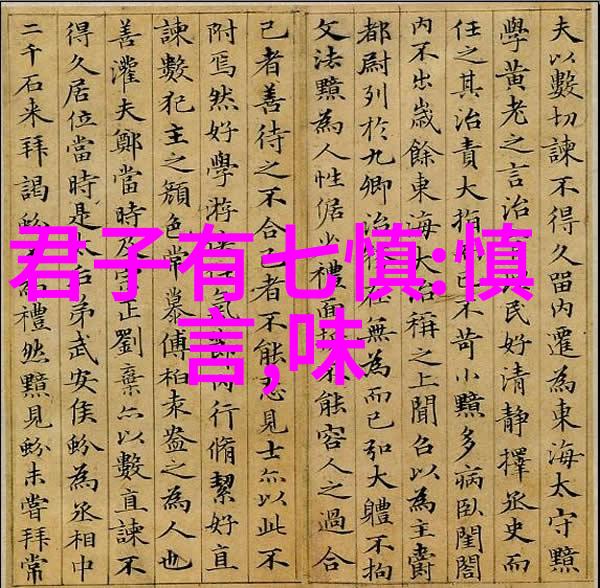 君子有七慎:慎
言,味
夫以數切諫不得久留內遷為東海太守黯
學黃老之言治民好清靜擇丞史而
任之其治責大指不苛小黯多病臥閨閤
內不出歲餘東海大治稱之上聞召以為主爵
都尉列於九卿治在無為而已弘大體不拘
文法黯為人性倨少禮面不能容人之過合
己者善待之不合者不能忍見士亦以此不
附焉然好學游氣內行脩絜好直
諫數犯主之顏色常慕傅柏袁盎之為人也
善灌夫鄭當時及宗正劉棄亦以數直諫不
得久居位當時是太后弟武安侯蚡為丞相中
二千石來拜謁蚡禮然黯見蚡未嘗拜常